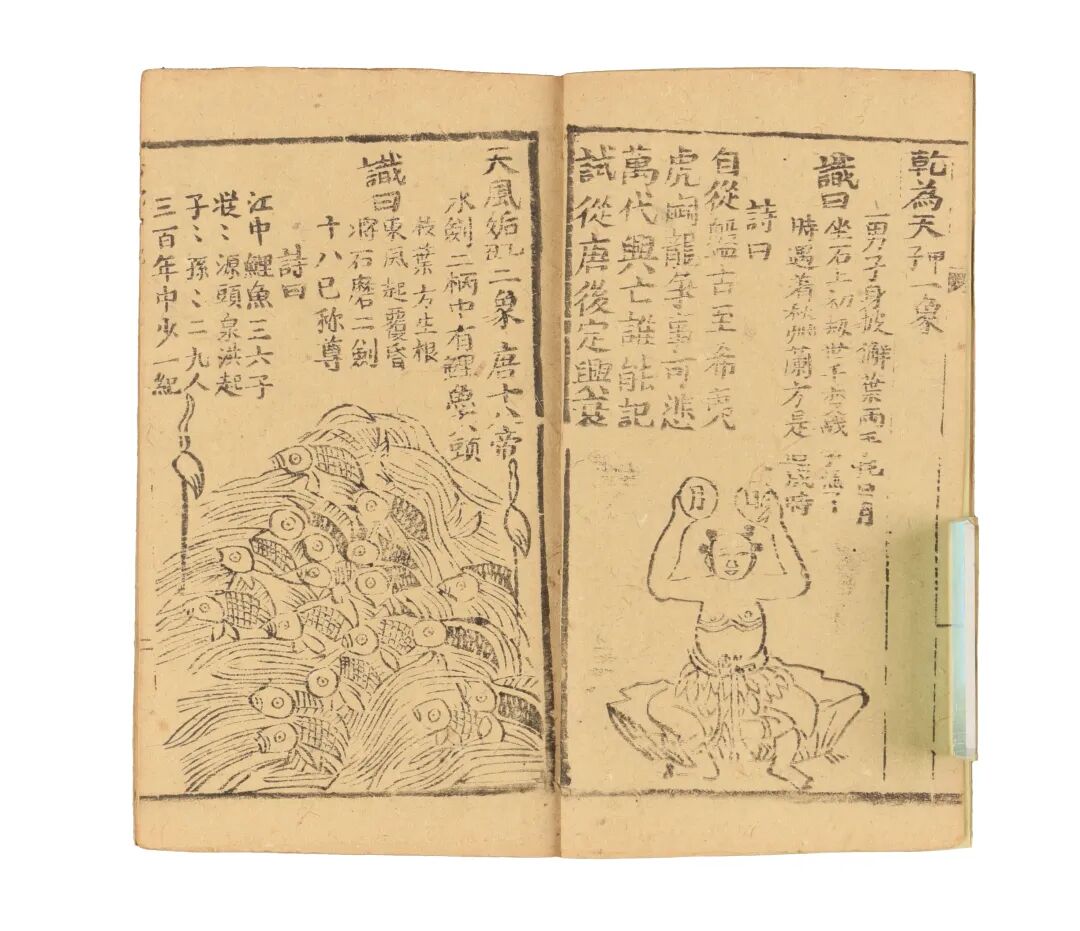 乾為天 一象
一男子身披懈葉兩手托日月
讖曰
坐石上初
時遇着秋 蘭方是 時
詩曰
自從盤古至希夷
虎鬥龍爭事可悲
萬代興亡誰能記
試從唐後定興衰
天風姤 二象 唐十八帝
水劍二柄中有鯉魚 頭
讖曰
枝葉方生根
東風起覆昏
將石磨二劍
十八已称尊
詩曰
江中鯉魚三六子
〻源頭泉洪起
子〻孫〻二九人
三百年中少一紀